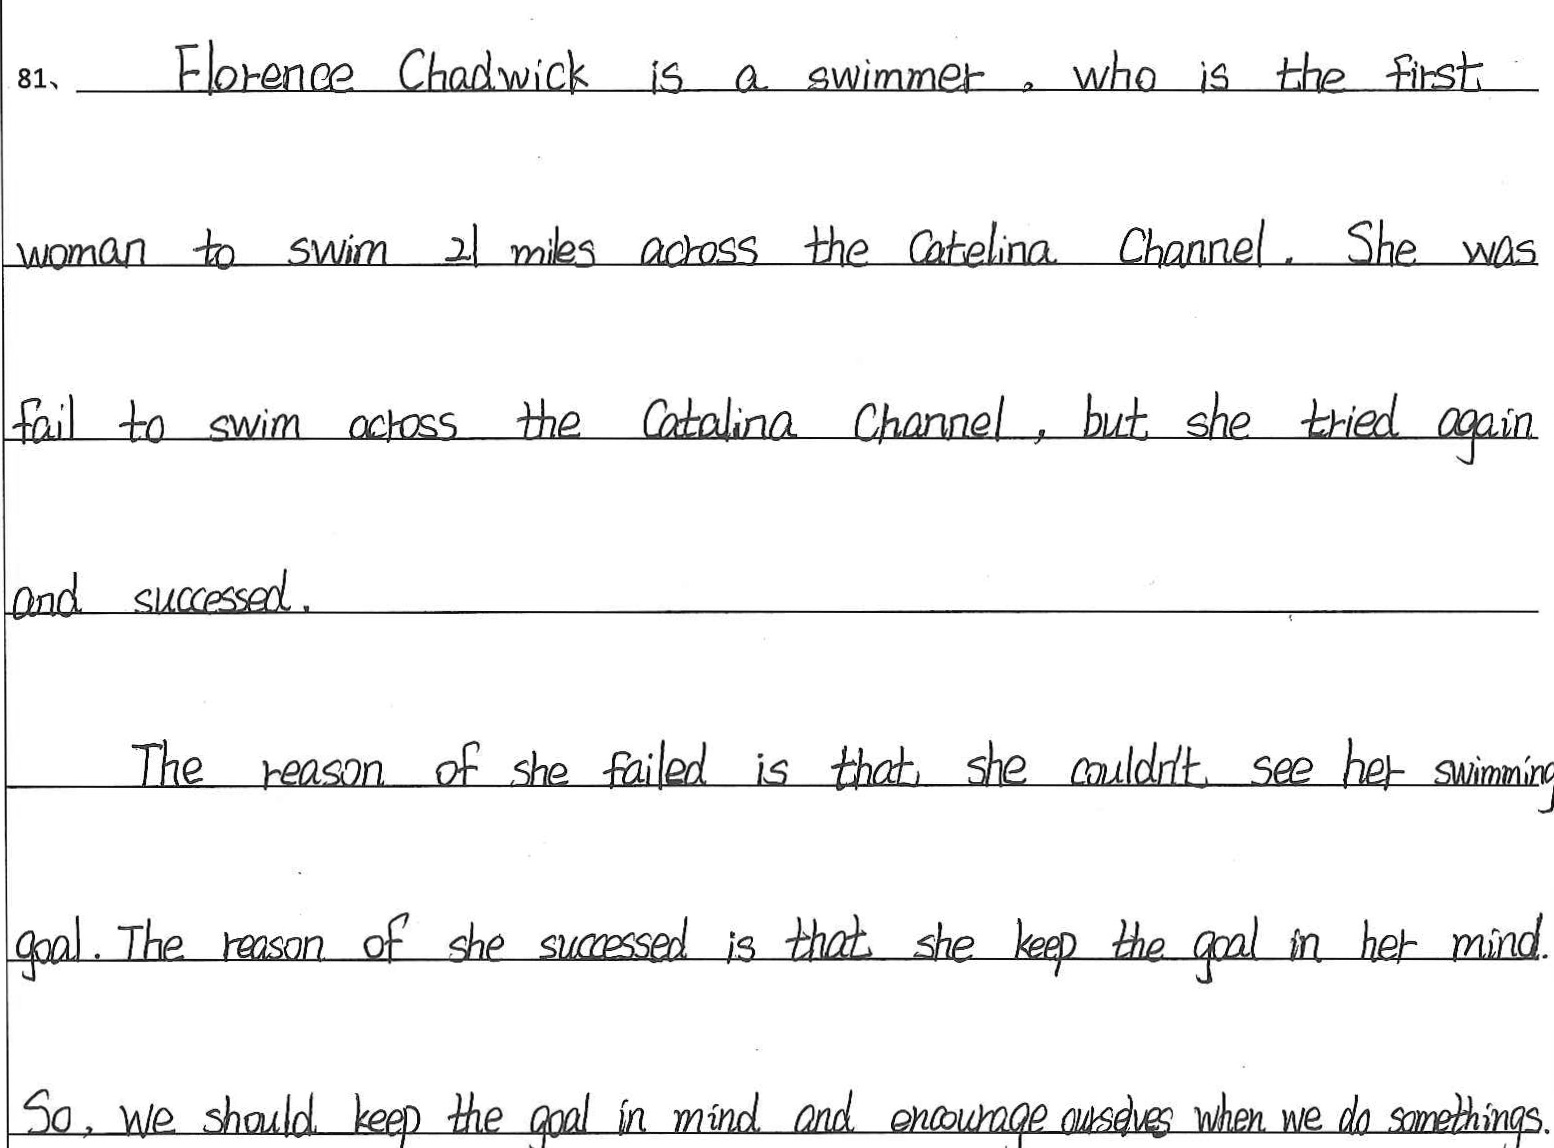 81、 Florence Chadwick is a swimmer, who is the first
woman to swim 21 miles across the Catelina Channel. She was
fail to swim across the Catalina Channel, but she tried again
and successed.
The reason of she failed is that she couldn't see her swimming
goal. The reason of she successed is that she keep the goal in her mind.
So, we should keep the goal in mind and encourage ourselves when we do somethings.